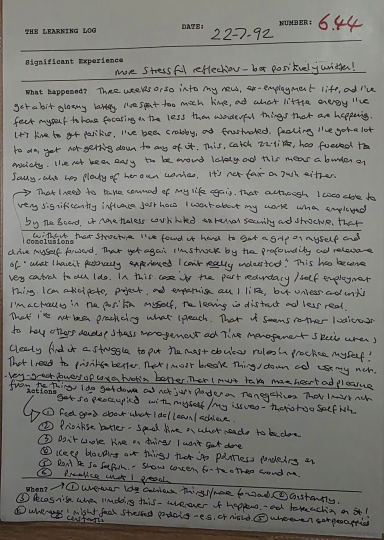 THE LEARNING LOG DATE: 22-7-92 NUMBER: 6.44
Significant Experience
More stressful reflection - but positively written!
What happened? Three weeks or so into my new, ex-employment life, and I've
got a bit gloomy lately. I've spent too much time, and what little energy I've
felt myself to have focusing on the less than wonderful things that are happening.
It's time to get positive. I've been crabby, and frustrated, feeling I've got a lot
to do, yet not getting down to any of it. This, catch 22-like, has fuelled the
anxiety. I've not been easy to be around lately and this means a burden on
Sally who has plenty of her own worries. It's not fair on her either.
→ That I need to take command of my life again. That although I was able to
very significantly influence just how I went about my work when employed
by the Board, it nonetheless provided external security and structure. That
without that structure I've found it hard to get a grip on myself and
Conclusions
drive myself forward. That yet again I'm struck by the profundity and relevance
of - "what I haven't personally experienced I can't really understand". This has become
very central to all I do. In this case it's the past redundancy/self employment
thing. I can anticipate, project, and empathise all I like, but unless and until
I'm actually in the position myself, the learning is distant and less real.
That I've not been practicing what I preach. That it seems rather ludicrous
to help others develop stress management and time management skills when I
clearly find it a struggle to put the most obvious rules in practice myself!
That I need to prioritise better. That I must break things down and
better. That I must take more heart and pleasure
from the things I do get done and not just ponder on the negatives. That I must not
Actions
get so preoccupied with myself/my issues - that's too selfish.
① Feel good about what I do/learn/achieve
② Prioritise better - spend time on what needs to be done
③ Don't waste time on things I won't get done
④ Keep blocking out things that it's pointless pondering on
⑤ Don't be so selfish - show concern for the others around me.
⑥ Practice what I preach
When? → ① Whenever I do achieve things/move forward. ② Constantly.
③ Recognise when I'm doing this - whenever it happens - and take action on it!
④ Whenever I might feel stressed pondering - e.g. at night ⑤ Whenever I get preoccupied
⑥ Constantly